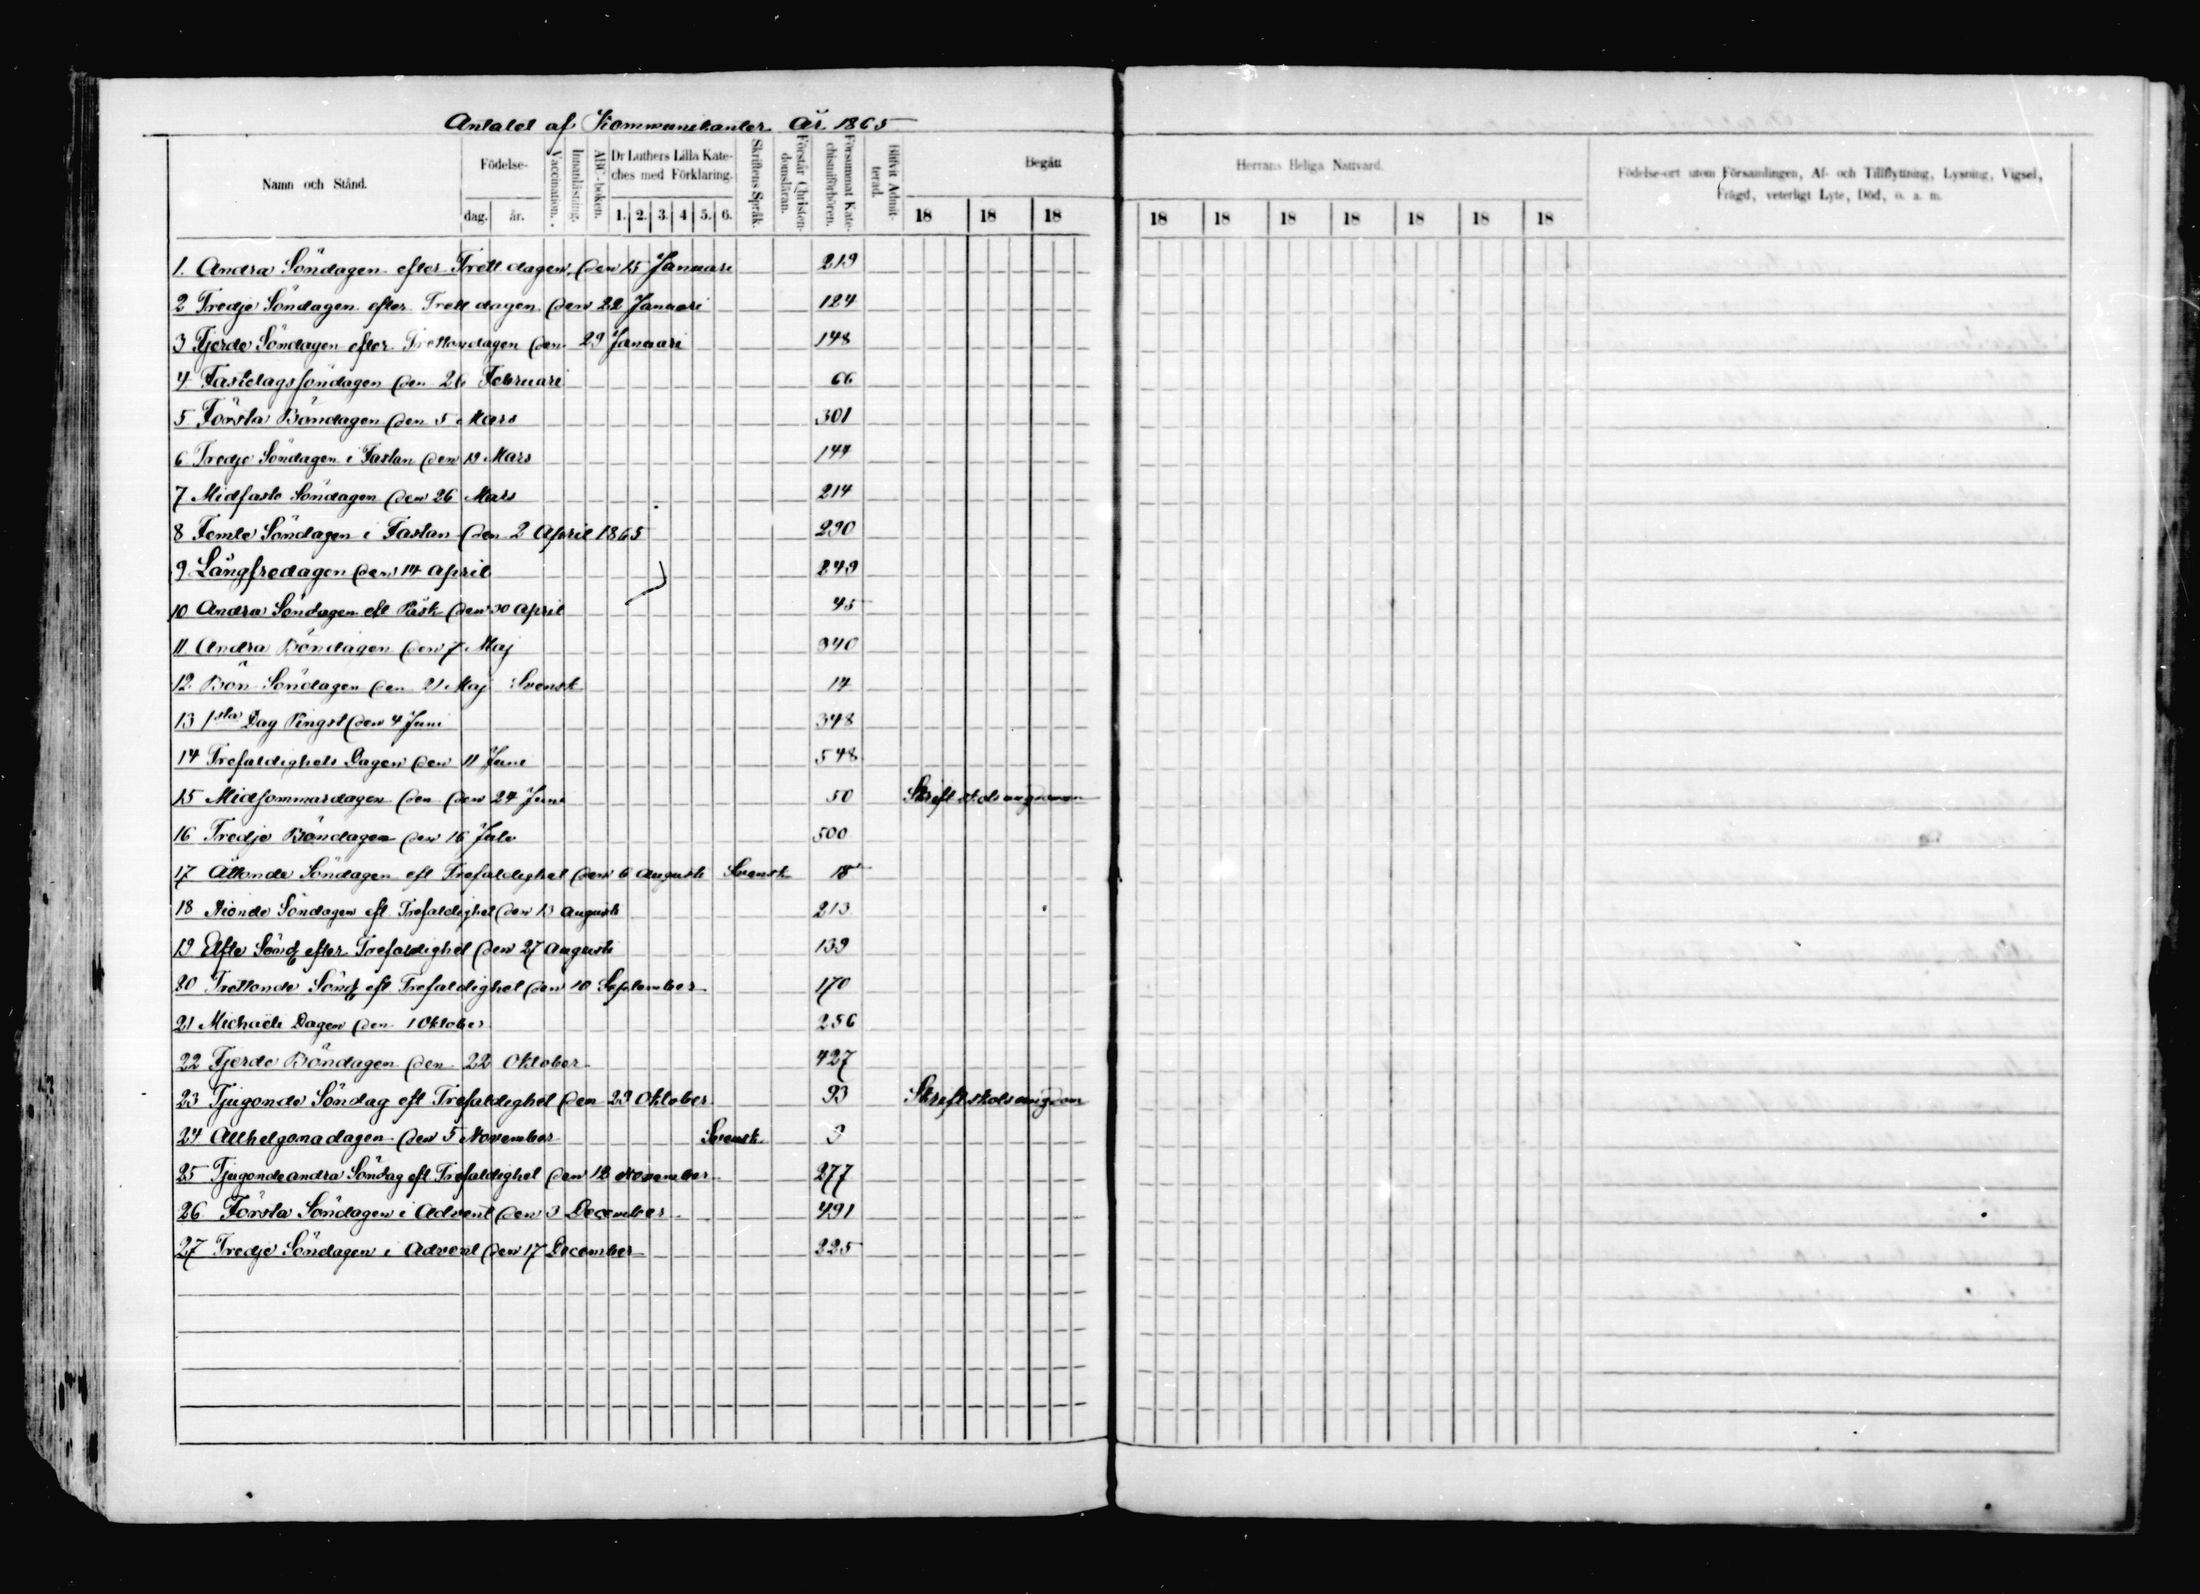 Antalet af Kommunikanter År 1865
Namn och Stånd.
Födelse-
dag. år.
Vaccination.
Innanläsning.
ABC-boken.
Dr Luthers Lilla Kate-
ches med Förklaring.
1. 2. 3. 4 5. 6.
Skriftens Språk.
Förstår Christen-
domsläran.
Försummat Kate-
chismiförhören.
Blifvit Admit-
terad.
Begått
18 18 18
Herrans Heliga Nattvard.
18 18 18 18 18 18 18
Födelse-ort utom Församlingen, Af- och Tillflyttning, Lysning, Vigsel,
Frägd, veterligt Lyte, Död, o. a. m.
1. Andra Söndagen efter Trettdagen den 15 Januari 219
2 Tredje Söndagen efter Trettdagen den 22 Januari 124
3 Fjerde Söndagen efter Trettondagen den 29 Januari 148
4 Fastlagssöndagen den 26 Februari 66
5 Första Böndagen den 5 Mars 301
6 Tredje Söndagen i Fastan den 19 Mars 144
7 Midfasto Söndagen den 26 Mars 214
8 Femte Söndagen i Fastan den 2 April 1865 290
9 Långfredagen den 14 April 249
10 Andra Söndagen eft Påsk den 30 April 45
11 Andra Böndagen den 7 Maj 340
12. Bön Söndagen den 21 Maj Svensk 14
13 1sta Dag Pingst den 4 Juni 348
14 Trefaldighets Dagen den 11 Juni 548
15 Midsommardagen den den 24 Juni 50 Skriftskolsungdomen
16 Tredje Böndagen den 16 Julii 500
17 Åttonde Söndagen eft Trefaldighet den 6 Augusti Svensk 18
18 Nionde Söndagen eft Trefaldighet den 13 Augusti 213
19 Elfte Sönd efter Trefaldighet den 27 Augusti 139
20 Trettonde Sönd eft Trefaldighet den 10 September 170
21 Michaëli Dagen den 1 Oktober 256
22 Fjerde Böndagen den 22 Oktober 427
23 Tjugonde Söndag eft Trefaldighet den 29 Oktober 93 Skriftskolsungdom
24 Allhelgonadagen den 5 November Svensk 9
25 Tjugondeandra Söndag eft Trefaldighet den 12 November 277
26 Första Söndagen i Advent den 3 December 491
27 Tredje Söndagen i Advent den 17 December 225